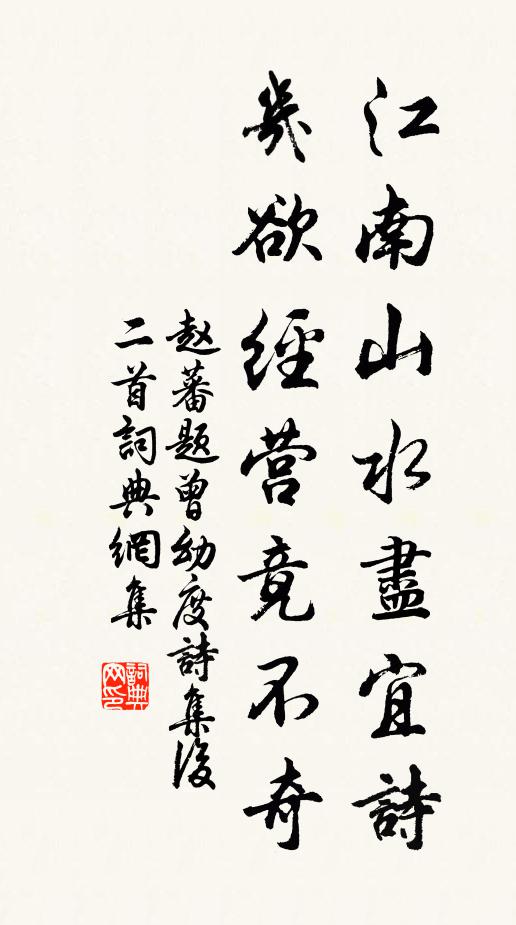 江南山水盡宜詩
幾欲經營竟不奇
赵蕃題曾幼度詩集後
二首詞典網集
詞典
网印